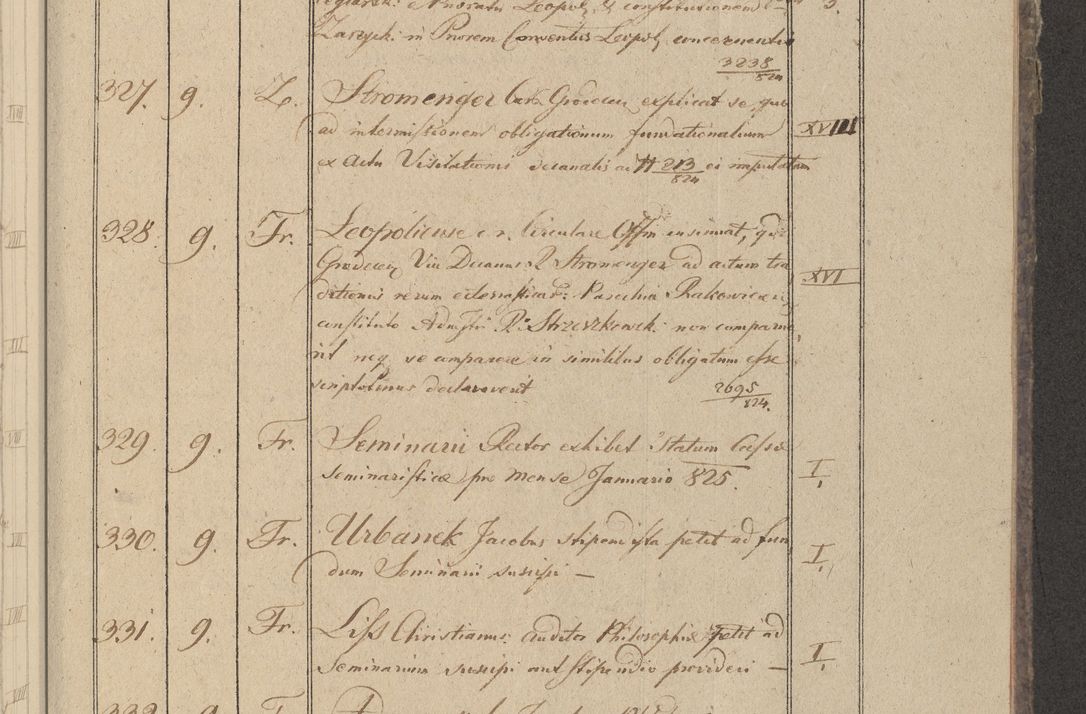 Zarzycki in Priorem Conventus Leopol concernentia
3238
824
327. 9. L. Stromenger Grodecen explicat se quo
ad intermissionem obligationum fundationalium XVIII
ex actu Visitationis decanalis ad 213 ei imputatam
824
328. 9. Fr. Leopoliense c. r. Circulare Offm insinuat, quod
Grodecen Vice Decanus Stromenger ad actum tra XVI
ditionis rerum Parochia Rakowiec
constituto Admstri R. non comparue
rit neq se comparere in similibus obligatum esse
scriptotenus declaraverit 2695
824.
329. 9. Fr. Seminarii Rector exhibet Statum Cassae
Seminaristicae pro Mense Januario 825. I.
330. 9. Fr. Urbanek Jacobus stipendista petit ad fun
dum Seminarii suscipi — I.
331. 9. Fr. Liss Christianus auditor Philosophiae petit ad
Seminarium suscipi aut stipendio provideri — I.
332. 9. Fr.